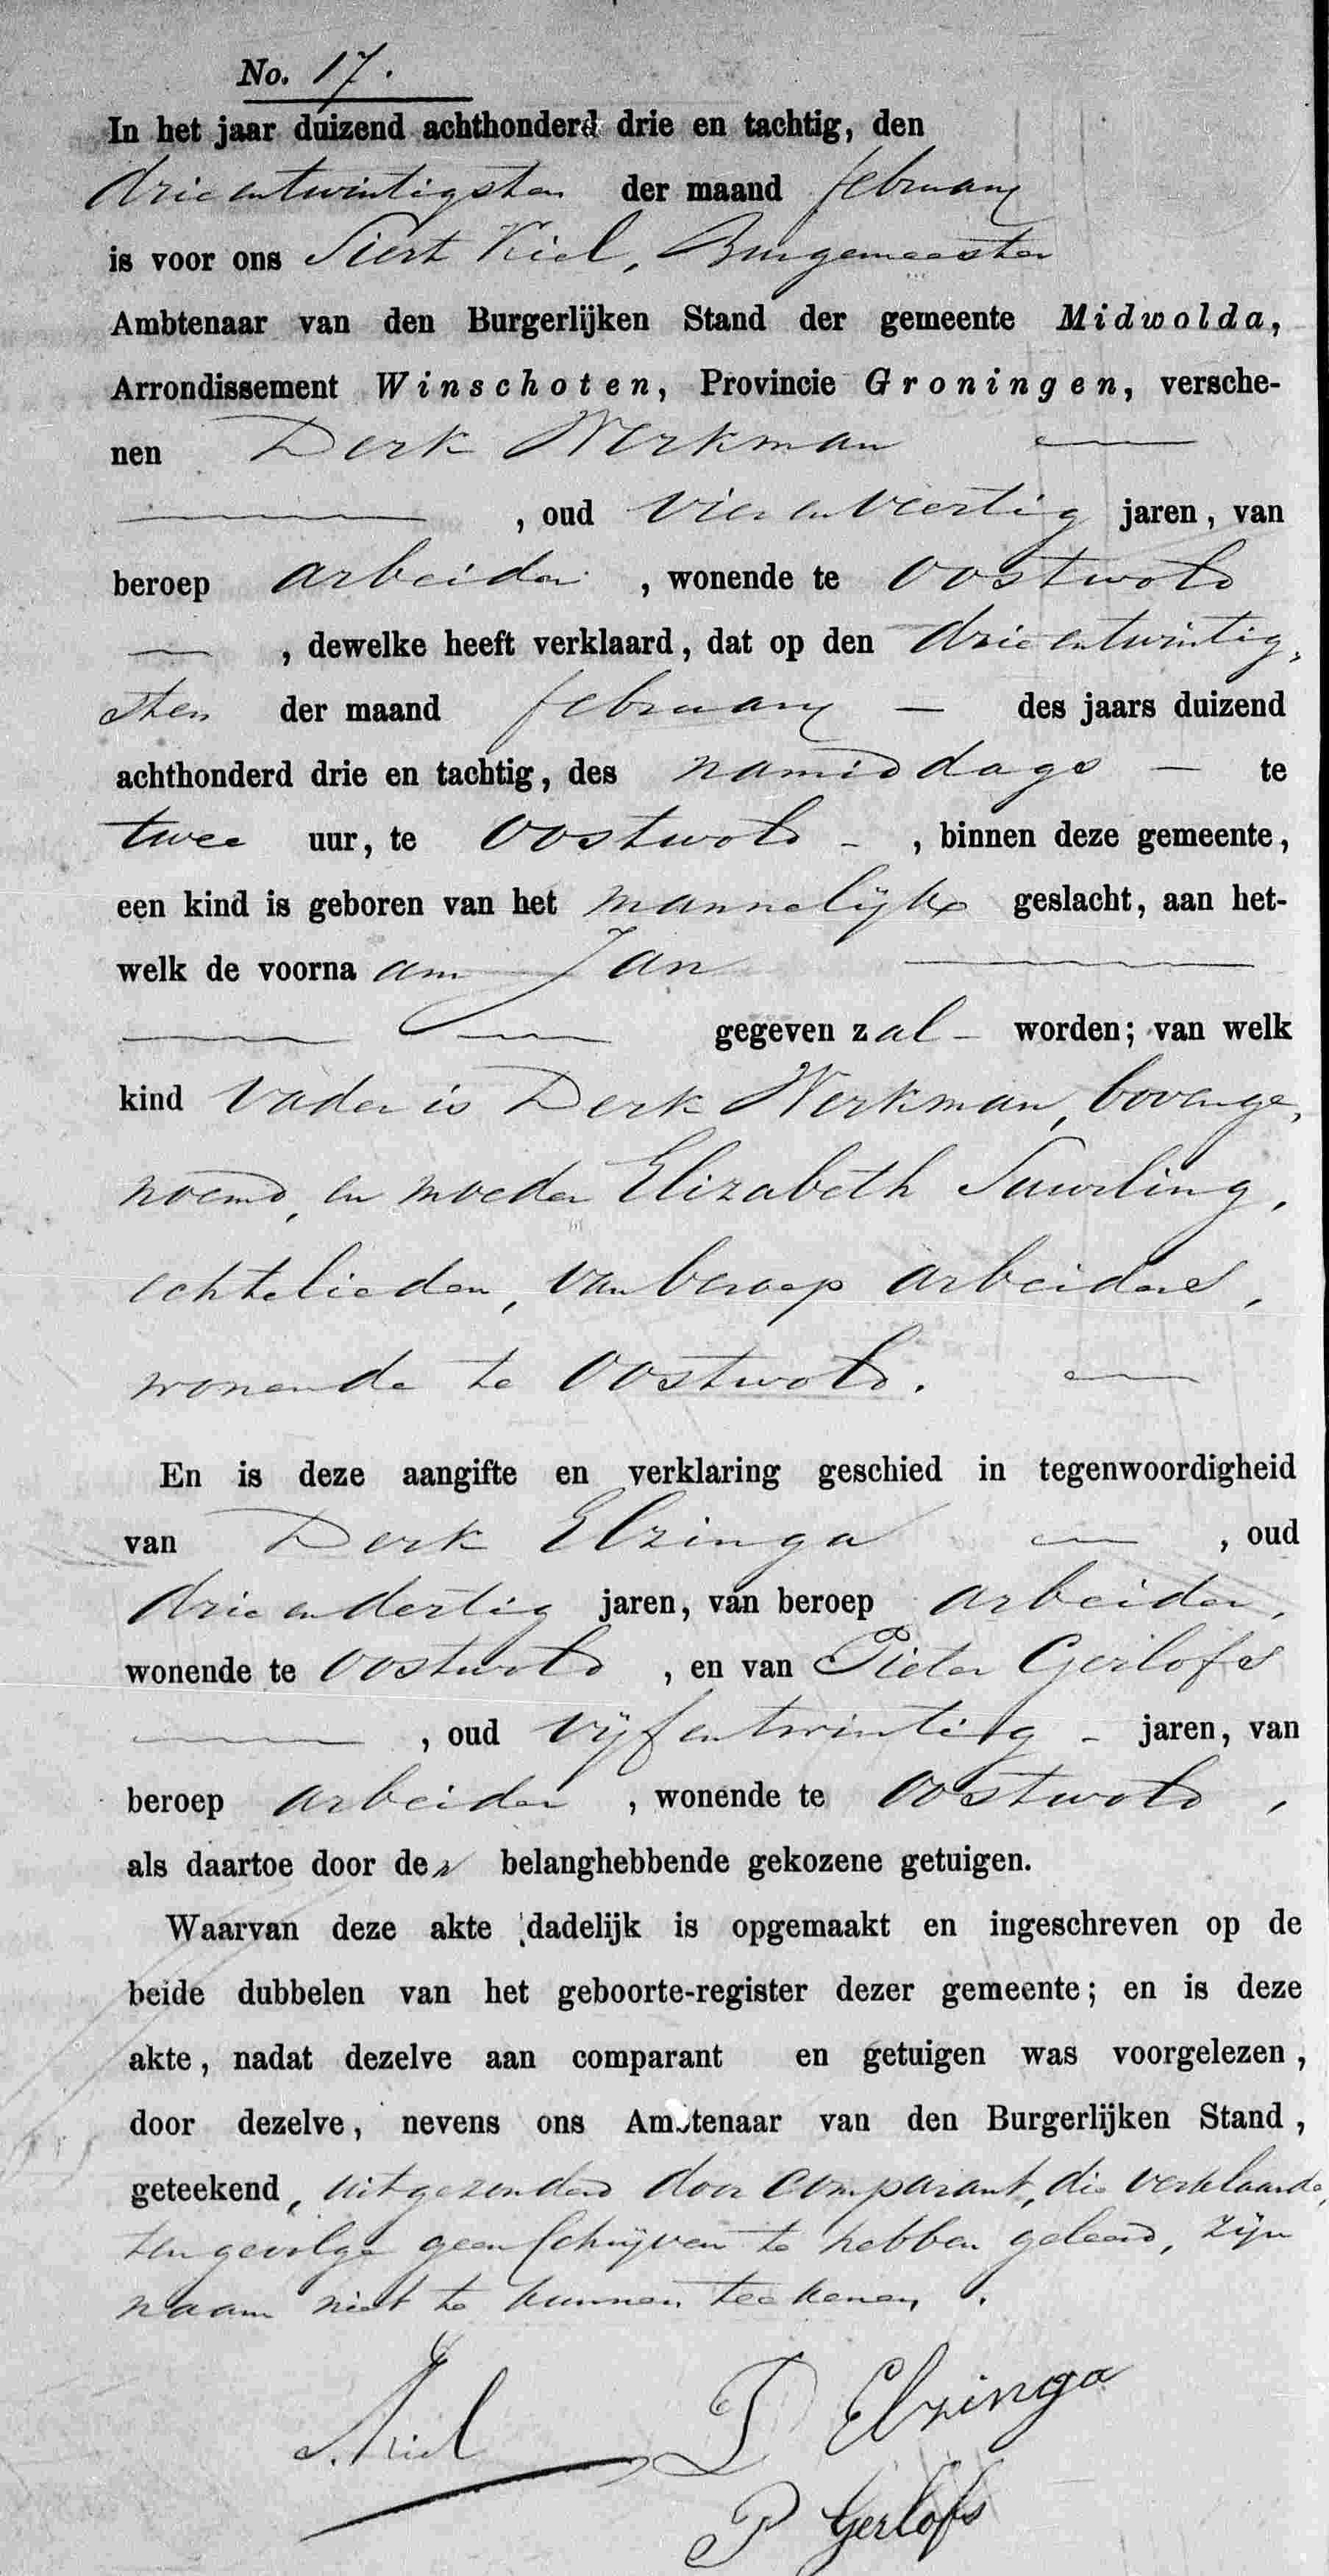 No. 17.
In het jaar duizend achthonderd drie en tachtig, den
drie entwintigsten der maand february
is voor ons Siert Kiel, Burgemeester
Ambtenaar van den Burgerlijken Stand der gemeente Midwolda,
Arrondissement Winschoten, Provincie Groningen, versche-
nen Derk Werkman
, oud vier en veertig jaren, van
beroep arbeider, wonende te Oostwold
, dewelke heeft verklaard, dat op den drie entwintig,
sten der maand february — des jaars duizend
achthonderd drie en tachtig, des namiddags — te
twee uur, te Oostwold - , binnen deze gemeente,
een kind is geboren van het mannelijke geslacht, aan het-
welk de voorna am Jan
gegeven zal - worden; van welk
kind vader is Derk Werkman, bovenge,
noemd, en moeder Elizabeth Suurling,
echtelieden, van beroep arbeiders,
wonende te Oostwold.
En is deze aangifte en verklaring geschied in tegenwoordigheid
van Derk Elzinga , oud
drie en dertig jaren, van beroep arbeider,
wonende te Oostwold , en van Pieter Gerlofs
, oud vijf en twintig - jaren, van
beroep arbeider , wonende te Oostwold ,
als daartoe door den belanghebbende gekozene getuigen.
Waarvan deze akte dadelijk is opgemaakt en ingeschreven op de
beide dubbelen van het geboorte-register dezer gemeente; en is deze
akte, nadat dezelve aan comparant en getuigen was voorgelezen,
door dezelve, nevens ons Ambtenaar van den Burgerlijken Stand,
geteekend, uitgezonderd door comparant, die verklaarde,
ten gevolge geen schrijven te hebben geleerd, zijn
naam niet te kunnen teekenen.
S. Kiel D Elzinga
P Gerlofs